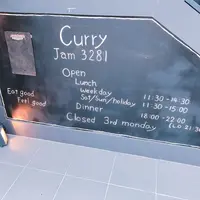 Curry
Jam 3281
Open
Lunch
Weekday 11:30-14:30
Sat/Sun/holiday 11:30-15:00
Dinner 18:00-22:00
Closed 3rd monday (LO 21:30
Eat good
Feel good